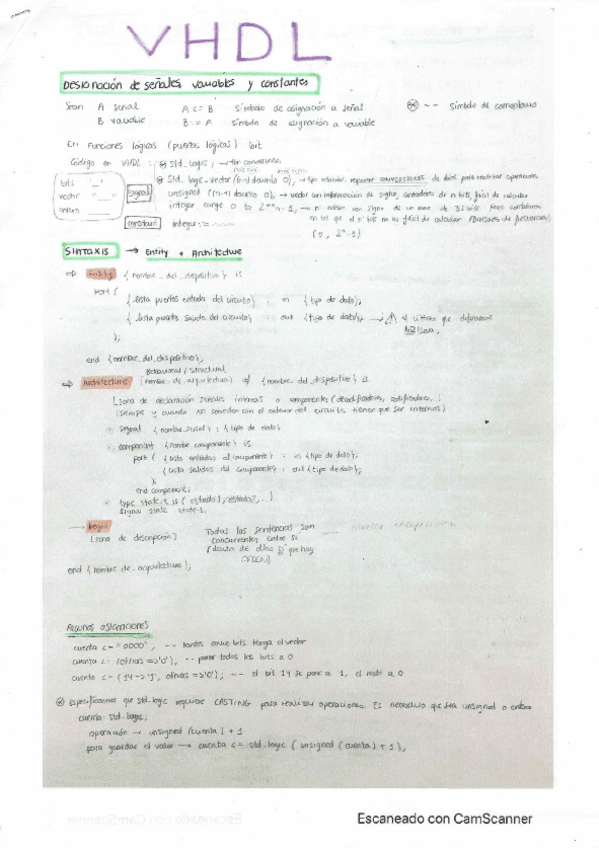 VHDL
Designación de señales, variables y constantes
Sean A señal A <= B símbolo de asignación a señal -- símbolo de comentario
B variable B := A símbolo de asignación a variable
En funciones lógicas (puertas lógicas): bit
Código en VHDL: std_logic;
std_logic_vector (n-1 downto 0);
bits '_' signal unsigned (n-1 downto 0);
vector "_" integer range 0 to 2**n-1;
constant integer :=
(0, 2^n-1)
SINTAXIS → Entity + Architecture
⇒ Entity {nombre_del_dispositivo} is
port (
{lista puertos entrada del circuito} : in {tipo de dato};
{lista puertos salida del circuito} : out {tipo de dato} → el último que definamos
NO lleva ;
);
end {nombre_del_dispositivo};
Behavioral / Structural
⇒ Architecture {nombre_de_arquitectura} of {nombre_del_dispositivo} is
[zona de declaración señales internas o componentes (decodificadores, codificadores...)
(siempre y cuando no conecten con el exterior del circuito, tienen que ser internas)
· signal {nombre_señal} : {tipo de dato};
· component {nombre_componente} is
port ( {lista entradas al componente} : in {tipo de dato};
{lista salidas del componente} : out {tipo de dato};
);
end component;
· type state_t is (estado1, estado2, ...)
signal state state_t;
→ begin Todas las sentencias son
[zona de descripción] concurrentes entre sí
(dentro de ellas sí que hay
orden)
end {nombre_de_arquitectura};
Algunas asignaciones
cuenta <= "0000"; -- tantos como bits tenga el vector
cuenta <= (others => '0'); -- poner todos los bits a 0
cuenta <= (14 => '1', others => '0'); -- el bit 14 se pone a 1, el resto a 0
Especificamos que std_logic requiere CASTING para realizar operaciones. Es necesario que sea unsigned o entero
cuenta: std_logic;
operación → unsigned (cuenta) + 1
para guardar el valor → cuenta <= std_logic (unsigned (cuenta) + 1);
Escaneado con CamScanner